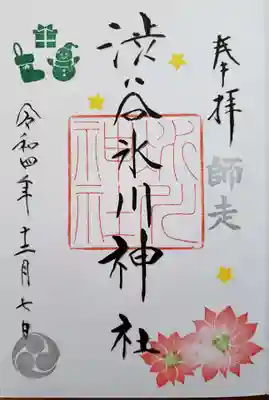 奉拝
師走
渋谷氷川神社
氷川
神社
令和四年十二月七日